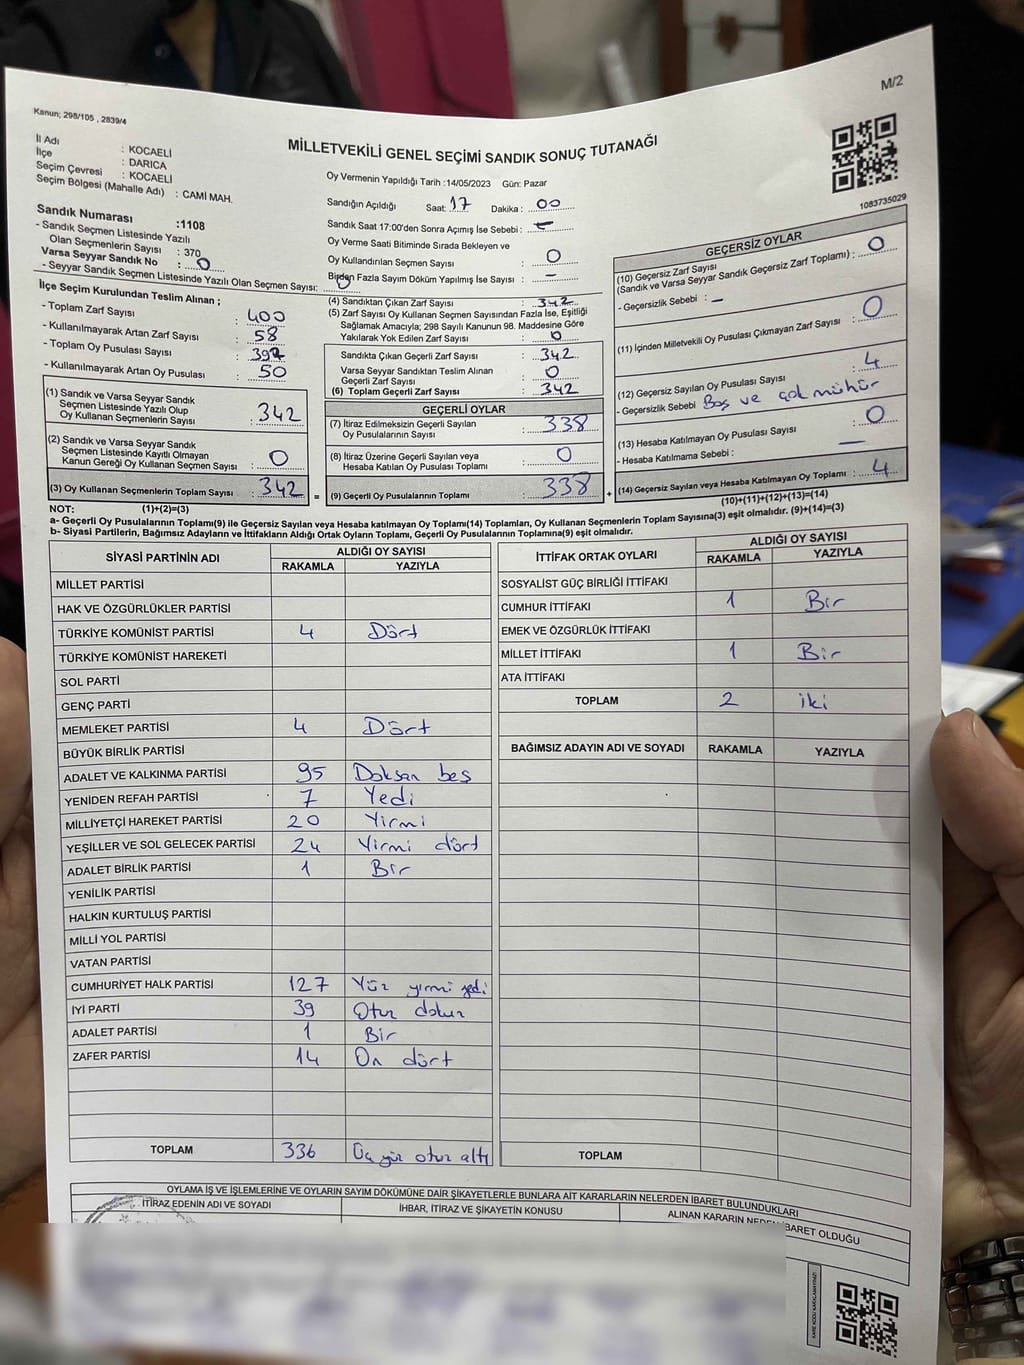 M/2
Kanun; 298/105 , 2839/4
MİLLETVEKİLİ GENEL SEÇİMİ SANDIK SONUÇ TUTANAĞI
1083735029
İl Adı : KOCAELİ
İlçe : DARICA
Seçim Çevresi : KOCAELİ
Seçim Bölgesi (Mahalle Adı) : CAMİ MAH.
Sandık Numarası :1108
- Sandık Seçmen Listesinde Yazılı
Olan Seçmenlerin Sayısı : 370
Varsa Seyyar Sandık No : 0
- Seyyar Sandık Seçmen Listesinde Yazılı Olan Seçmen Sayısı: 0
İlçe Seçim Kurulundan Teslim Alınan ;
- Toplam Zarf Sayısı : 400
- Kullanılmayarak Artan Zarf Sayısı : 58
- Toplam Oy Pusulası Sayısı : 392
- Kullanılmayarak Artan Oy Pusulası : 50
(1) Sandık ve Varsa Seyyar Sandık
Seçmen Listesinde Yazılı Olup
Oy Kullanan Seçmenlerin Sayısı : 342
(2) Sandık ve Varsa Seyyar Sandık
Seçmen Listesinde Kayıtlı Olmayan
Kanun Gereği Oy Kullanan Seçmen Sayısı : 0
(3) Oy Kullanan Seçmenlerin Toplam Sayısı : 342
(1)+(2)=(3)
Oy Vermenin Yapıldığı Tarih :14/05/2023 Gün: Pazar
Sandığın Açıldığı Saat: 17 Dakika : 00
Sandık Saat 17:00'den Sonra Açımış İse Sebebi : -
Oy Verme Saati Bitiminde Sırada Bekleyen ve
Oy Kullandırılan Seçmen Sayısı : 0
Birden Fazla Sayım Döküm Yapılmış İse Sayısı : -
(4) Sandıktan Çıkan Zarf Sayısı : 342
(5) Zarf Sayısı Oy Kullanan Seçmen Sayısından Fazla İse, Eşitliği
Sağlamak Amacıyla; 298 Sayılı Kanunun 98. Maddesine Göre
Yakılarak Yok Edilen Zarf Sayısı : 0
Sandıkta Çıkan Geçerli Zarf Sayısı : 342
Varsa Seyyar Sandıktan Teslim Alınan
Geçerli Zarf Sayısı : 0
(6) Toplam Geçerli Zarf Sayısı : 342
GEÇERLİ OYLAR
(7) İtiraz Edilmeksizin Geçerli Sayılan
Oy Pusulalarının Sayısı : 338
(8) İtiraz Üzerine Geçerli Sayılan veya
Hesaba Katılan Oy Pusulası Toplamı : 0
= (9) Geçerli Oy Pusulalarının Toplamı : 338 +
GEÇERSİZ OYLAR
(10) Geçersiz Zarf Sayısı
(Sandık ve Varsa Seyyar Sandık Geçersiz Zarf Toplamı) : 0
- Geçersizlik Sebebi : -
(11) İçinden Milletvekili Oy Pusulası Çıkmayan Zarf Sayısı : 0
(12) Geçersiz Sayılan Oy Pusulası Sayısı : 4
- Geçersizlik Sebebi Boş ve çok mühür
(13) Hesaba Katılmayan Oy Pusulası Sayısı : 0
- Hesaba Katılmama Sebebi : -
(14) Geçersiz Sayılan veya Hesaba Katılmayan Oy Toplamı : 4
(10)+(11)+(12)+(13)=(14)
NOT:
a- Geçerli Oy Pusulalarının Toplamı(9) ile Geçersiz Sayılan veya Hesaba katılmayan Oy Toplamı(14) Toplamları, Oy Kullanan Seçmenlerin Toplam Sayısına(3) eşit olmalıdır. (9)+(14)=(3)
b- Siyasi Partilerin, Bağımsız Adayların ve İttifakların Aldığı Ortak Oyların Toplamı, Geçerli Oy Pusulalarının Toplamına(9) eşit olmalıdır.
SİYASİ PARTİNİN ADI ALDIĞI OY SAYISI
RAKAMLA YAZIYLA
MİLLET PARTİSİ
HAK VE ÖZGÜRLÜKLER PARTİSİ
TÜRKİYE KOMÜNİST PARTİSİ 4 Dört
TÜRKİYE KOMÜNİST HAREKETİ
SOL PARTİ
GENÇ PARTİ
MEMLEKET PARTİSİ 4 Dört
BÜYÜK BİRLİK PARTİSİ
ADALET VE KALKINMA PARTİSİ 95 Doksan beş
YENİDEN REFAH PARTİSİ 7 Yedi
MİLLİYETÇİ HAREKET PARTİSİ 20 Yirmi
YEŞİLLER VE SOL GELECEK PARTİSİ 24 Yirmi dört
ADALET BİRLİK PARTİSİ 1 Bir
YENİLİK PARTİSİ
HALKIN KURTULUŞ PARTİSİ
MİLLİ YOL PARTİSİ
VATAN PARTİSİ
CUMHURİYET HALK PARTİSİ 127 Yüz yirmi yedi
İYİ PARTİ 39 Otuz dokuz
ADALET PARTİSİ 1 Bir
ZAFER PARTİSİ 14 On dört
TOPLAM 336 Üç yüz otuz altı
İTTİFAK ORTAK OYLARI ALDIĞI OY SAYISI
RAKAMLA YAZIYLA
SOSYALİST GÜÇ BİRLİĞİ İTTİFAKI
CUMHUR İTTİFAKI 1 Bir
EMEK VE ÖZGÜRLÜK İTTİFAKI
MİLLET İTTİFAKI 1 Bir
ATA İTTİFAKI
TOPLAM 2 iki
BAĞIMSIZ ADAYIN ADI VE SOYADI RAKAMLA YAZIYLA
TOPLAM
OYLAMA İŞ VE İŞLEMLERİNE VE OYLARIN SAYIM DÖKÜMÜNE DAİR ŞİKAYETLERLE BUNLARA AİT KARARLARIN NELERDEN İBARET BULUNDUKLARI
İTİRAZ EDENİN ADI VE SOYADI İHBAR, İTİRAZ VE ŞİKAYETİN KONUSU ALINAN KARARIN NEDEN İBARET OLDUĞU